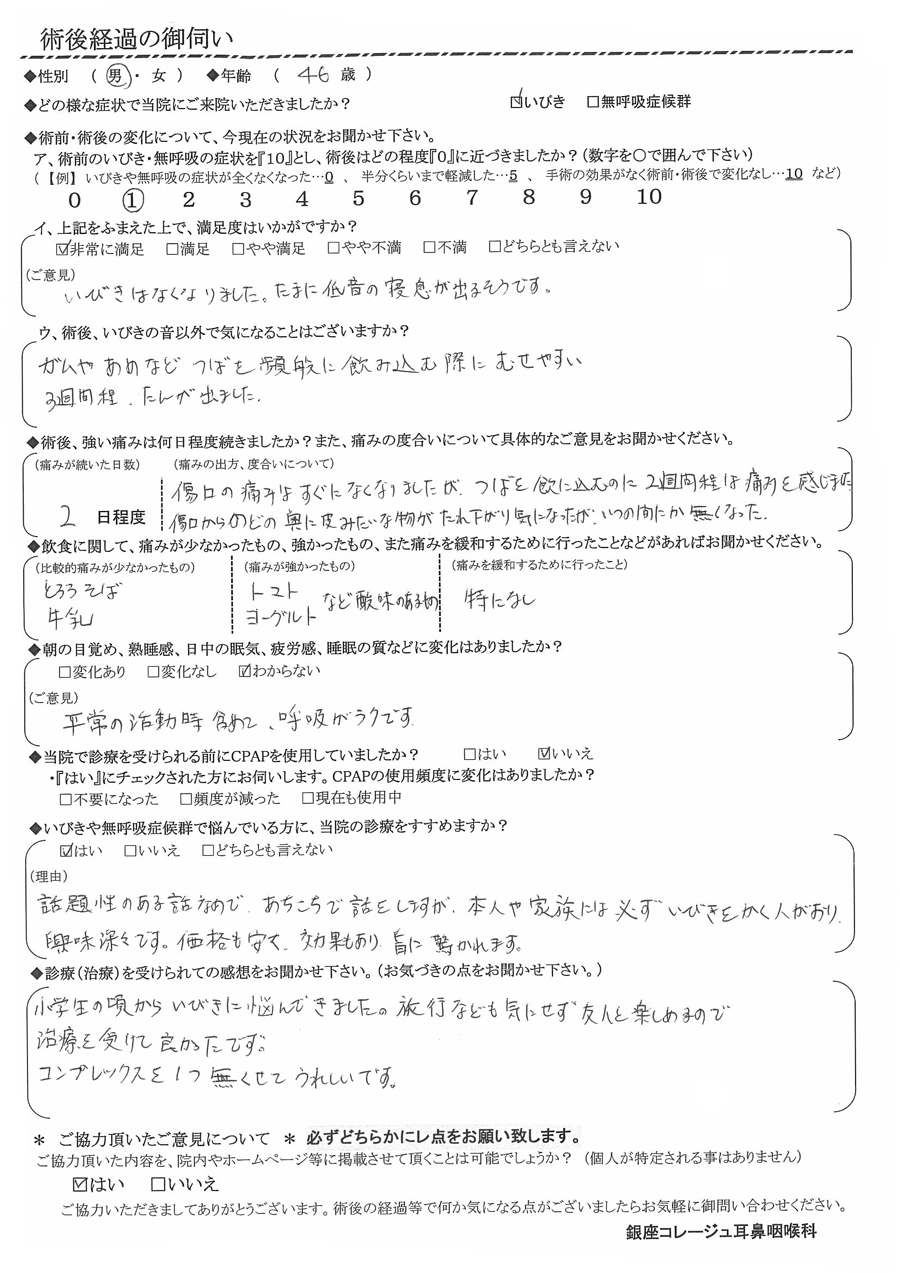 術後経過の御伺い
◆性別 （ 男 ・ 女 ） ◆年齢 （ 46 歳 ）
◆どの様な症状で当院にご来院いただきましたか？ ☑いびき □無呼吸症候群
◆術前・術後の変化について、今現在の状況をお聞かせ下さい。
ア、術前のいびき・無呼吸の症状を『10』とし、術後はどの程度『0』に近づきましたか？（数字を〇で囲んで下さい）
（ 【例】 いびきや無呼吸の症状が全くなくなった…0 、 半分くらいまで軽減した…5 、 手術の効果がなく術前・術後で変化なし…10 など）
0 ① 2 3 4 5 6 7 8 9 10
イ、上記をふまえた上で、満足度はいかがですか？
☑非常に満足 □満足 □やや満足 □やや不満 □不満 □どちらとも言えない
（ご意見）
いびきはなくなりました。たまに低音の寝息が出るそうです。
ウ、術後、いびきの音以外で気になることはございますか？
ガムや あめなど つばを 頻般に 飲み込む 際に むせやすい
3週間程、たんが出ました。
◆術後、強い痛みは何日程度続きましたか？また、痛みの度合いについて具体的なご意見をお聞かせください。
（痛みが続いた日数） （痛みの出方、度合いについて）
傷口の痛みはすぐになくなりましたが、つばを飲に込むのに2週間程は痛みを感じました
2 日程度
傷口からのどの奥に皮みたいな物がたれ下がり気になったが、いつの間にか無くなった。
◆飲食に関して、痛みが少なかったもの、強かったもの、また痛みを緩和するために行ったことなどがあればお聞かせください。
（比較的痛みが少なかったもの） （痛みが強かったもの） （痛みを緩和するために行ったこと）
とろろそば トマト など酸味のあるもの 特になし
牛乳 ヨーグルト
◆朝の目覚め、熟睡感、日中の眠気、疲労感、睡眠の質などに変化はありましたか？
□変化あり □変化なし ☑わからない
（ご意見）
平常の活動時含めて、呼吸がラクです
◆当院で診療を受けられる前にCPAPを使用していましたか？ □はい ☑いいえ
・『はい』にチェックされた方にお伺いします。CPAPの使用頻度に変化はありましたか？
□不要になった □頻度が減った □現在も使用中
◆いびきや無呼吸症候群で悩んでいる方に、当院の診療をすすめますか？
☑はい □いいえ □どちらとも言えない
（理由）
話題性のある話なので、あちこちで話をしますが、本人や家族には必ずいびきをかく人がおり、
興味深々です。価格も安く、効果もあり、皆に驚かれます。
◆診療（治療）を受けられての感想をお聞かせ下さい。（お気づきの点をお聞かせ下さい。）
小学生の頃から いびきに悩んできました。旅行なども気にせず友人と楽しめるので
治療を受けて良かたです。
コンプレックスを1つ無くせてうれしいです。
＊ ご協力頂いたご意見について ＊ 必ずどちらかにレ点をお願い致します。
ご協力頂いた内容を、院内やホームページ等に掲載させて頂くことは可能でしょうか？ （個人が特定される事はありません）
☑はい □いいえ
ご協力いただきましてありがとうございます。術後の経過等で何か気になる点がございましたらお気軽に御問い合わせください。
銀座コレージュ耳鼻咽喉科